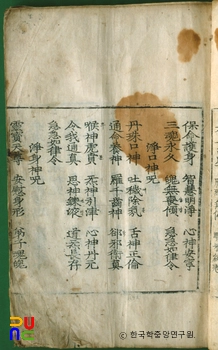 保命護身 智慧明淨 心神安寧
三魂永久 魄無喪傾 急急如律令
淨口神呪
丹珠口神 吐穢除氛 舌神正倫
通命養神 羅千齒神 却邪衛眞
喉神虎賁 炁神引津 心神丹元
令我通眞 思神鍊液 道炁長存
急急如律令
淨身神呪
靈寶天尊 安慰身形 弟子魂魄
ⓒ한국학중앙연구원